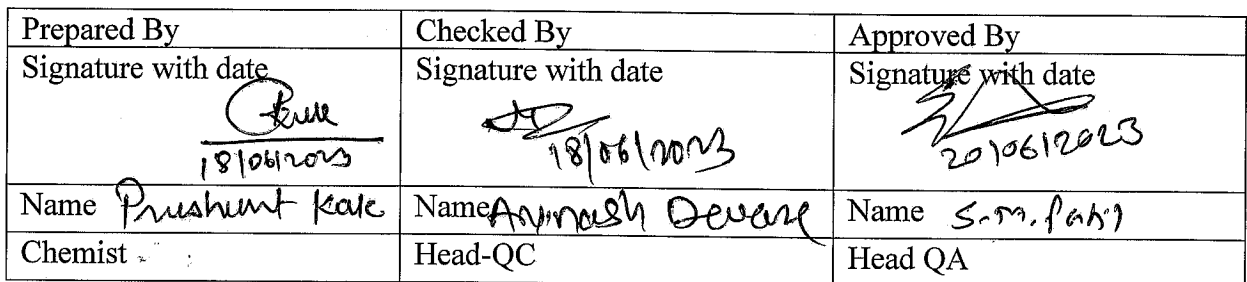 Prepared By Checked By Approved By
Signature with date Signature with date Signature with date
18/06/2023 18/06/2023 20/06/2023
Name Prashant Kale Name Avinash Deware Name S.M. Patil
Chemist Head-QC Head QA